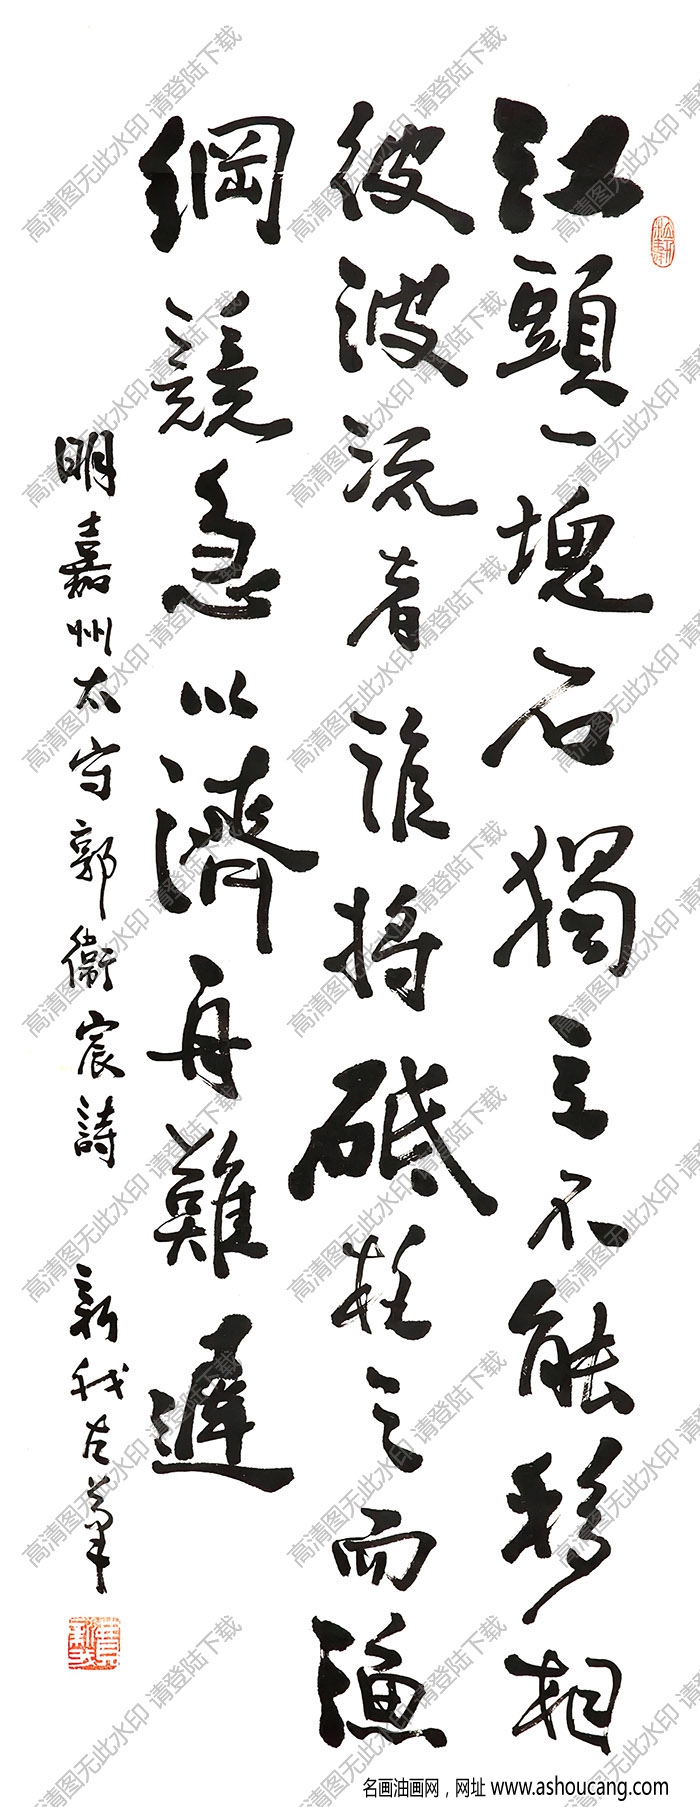 江頭一塊石獨立不能移相
彼波流者誰將砥柱之而漁
綱競急以濟舟難遲
明嘉州太守郭衛宸詩 新我左筆
高清图无此水印 请登陆下载
名画油画网，网址 www.ashoucang.com